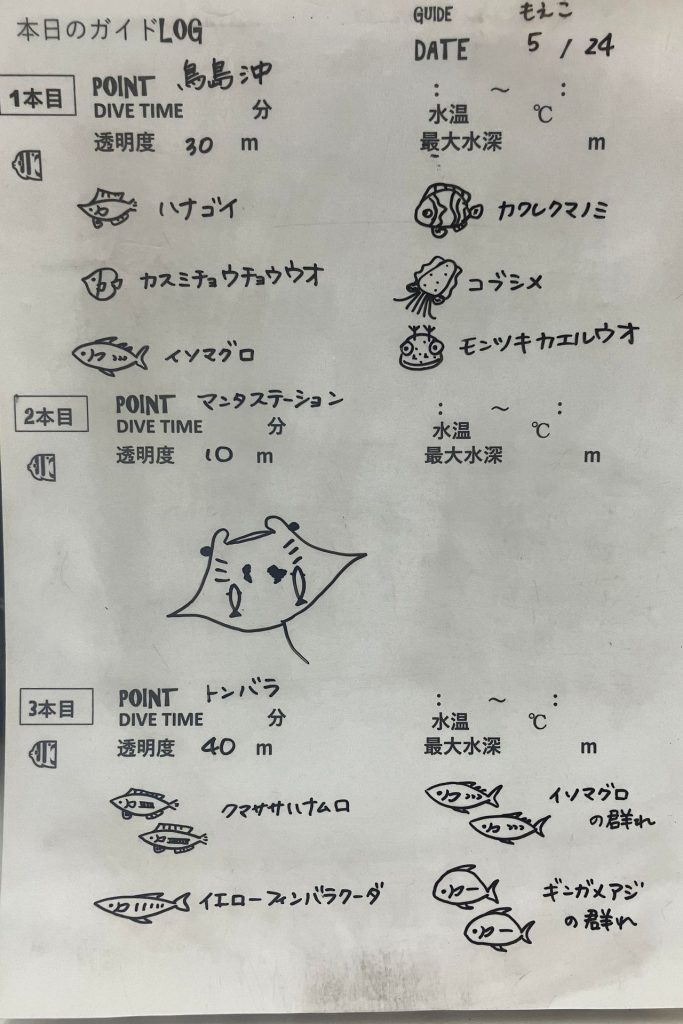 本日のガイドLOG
GUIDE もえこ
DATE 5 / 24
1本目 POINT 鳥島沖 : ～ :
DIVE TIME 分 水温 ℃
透明度 30 m 最大水深 m
ハナゴイ カクレクマノミ
カスミチョウチョウウオ コブシメ
イソマグロ モンツキカエルウオ
2本目 POINT マンタステーション : ～ :
DIVE TIME 分 水温 ℃
透明度 10 m 最大水深 m
3本目 POINT トンバラ : ～ :
DIVE TIME 分 水温 ℃
透明度 40 m 最大水深 m
クマササハナムロ イソマグロ
の群れ
イエローフィンバラクーダ ギンガメアジ
の群れ